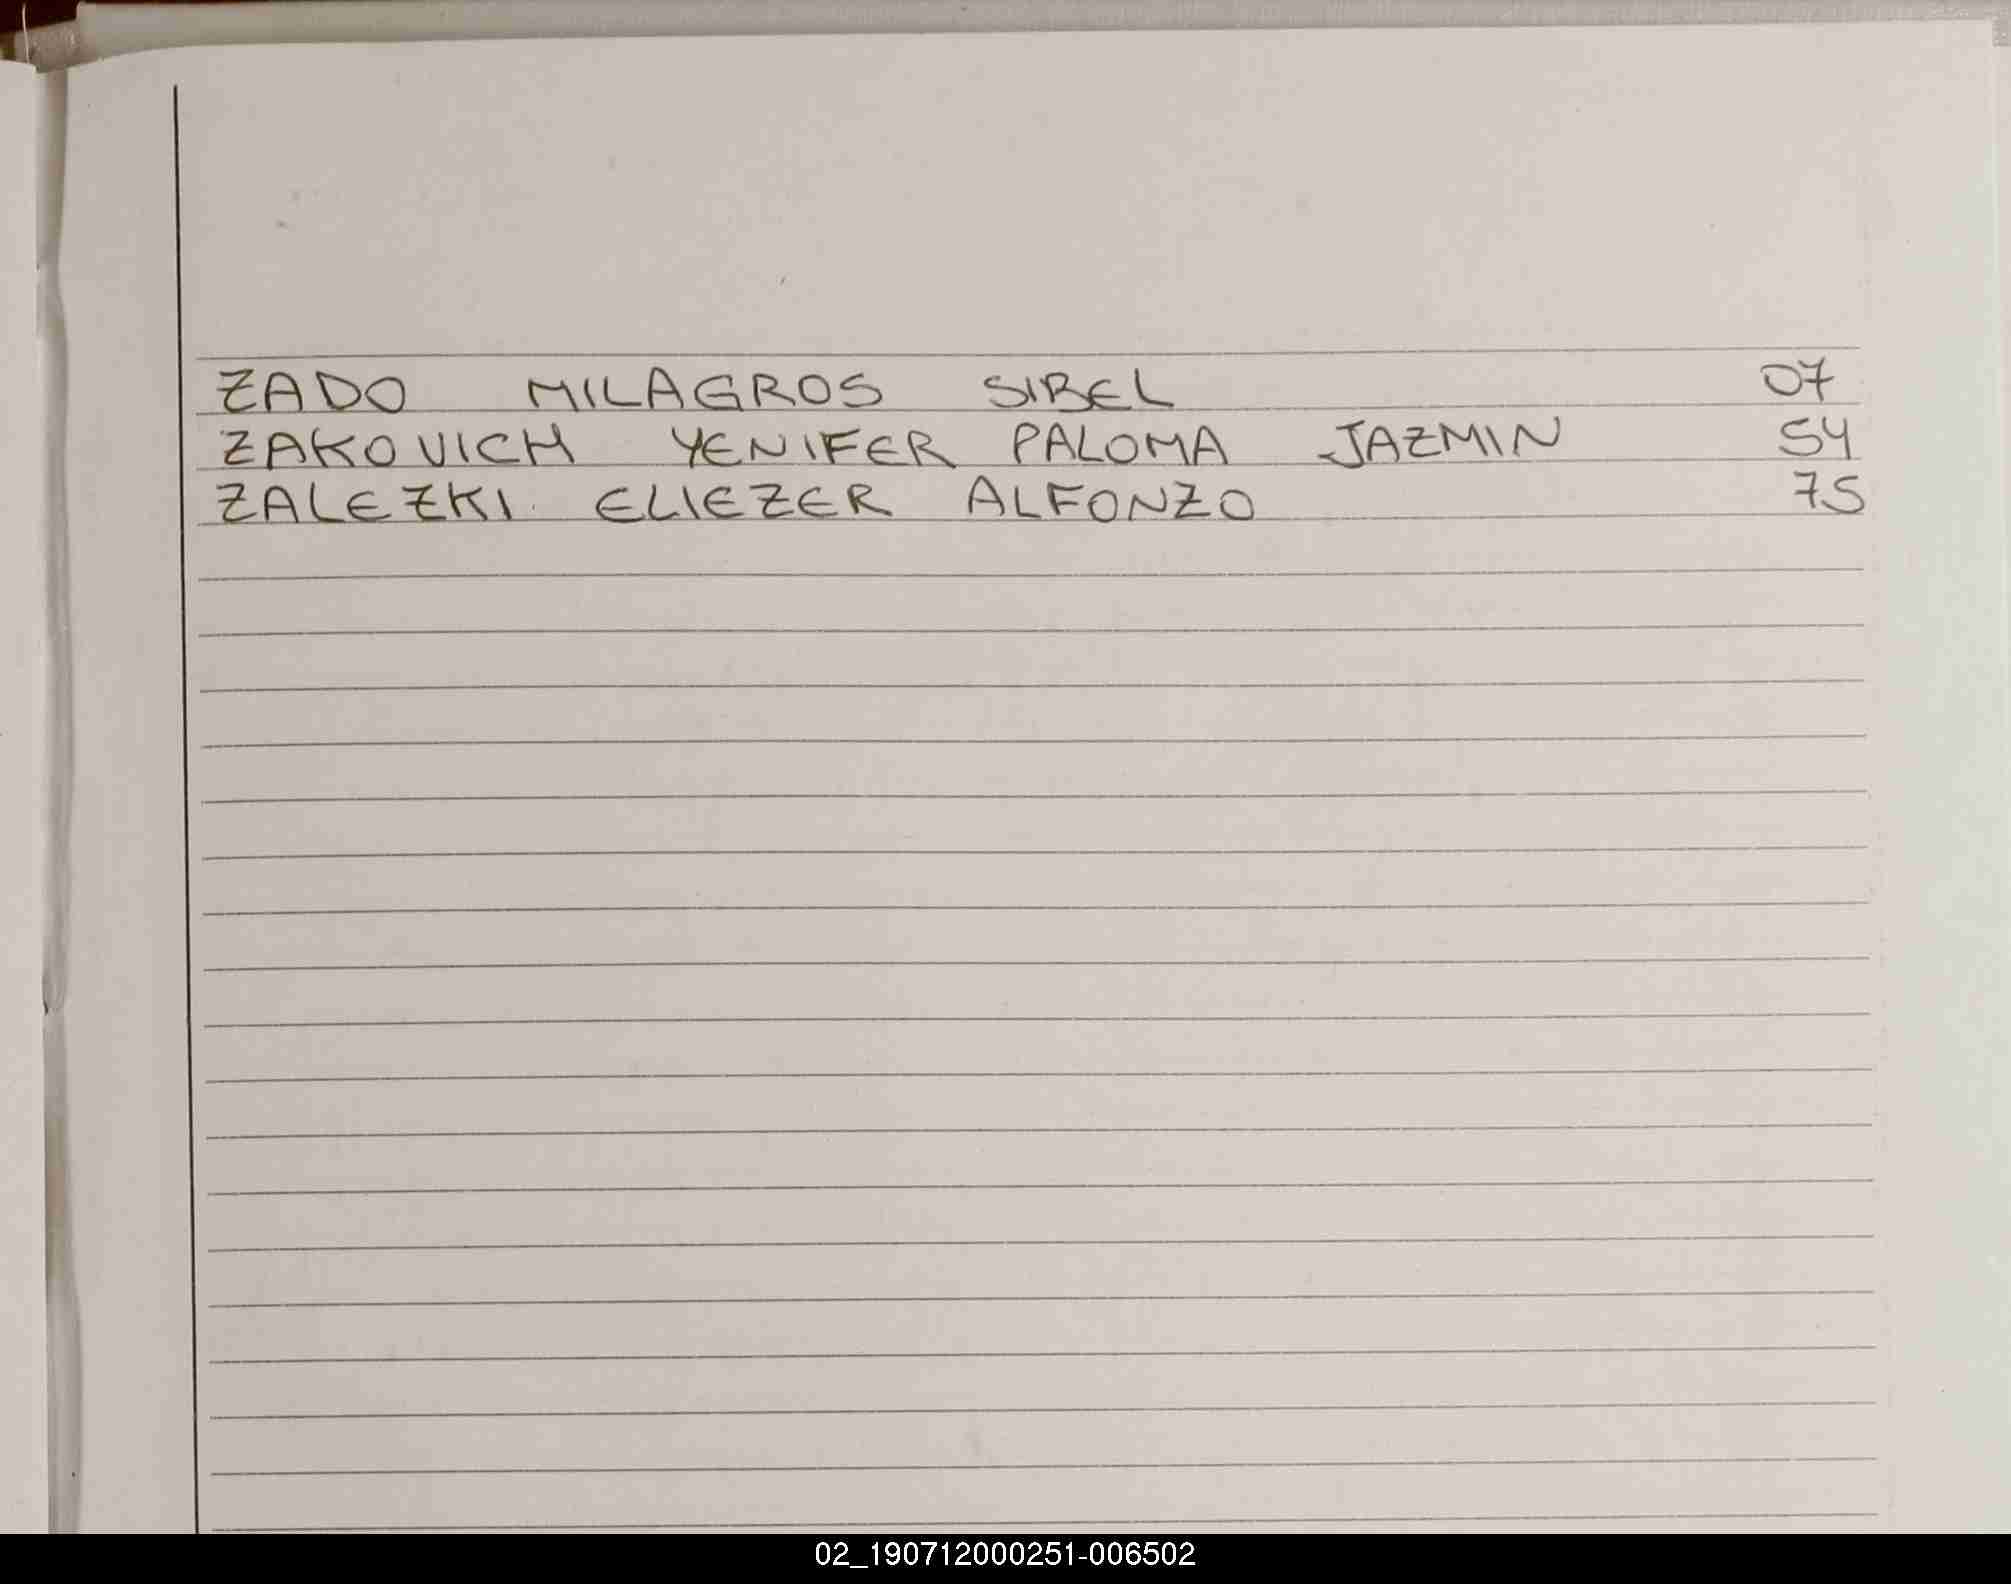 ZADO MILAGROS SIBEL 07
ZAKOVICH YENIFER PALOMA JAZMIN 54
ZALEZKI ELIEZER ALFONZO 75
02_190712000251-006502